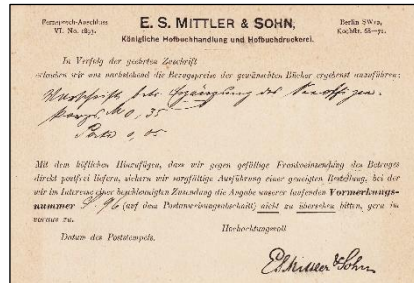 Fernsprech-Anschluss
VI. No. 1893.
E. S. MITTLER & SOHN,
Königliche Hofbuchhandlung und Hofbuchdruckerei.
Berlin SW12,
Kochstr. 68–71.
In Verfolg der geehrten Zuschrift
erlauben wir uns nachstehend die Bezugspreise der gewünschten Bücher ergebenst anzuführen:
Vorschrift betr. Ergänzung des Seeoffizier-
korps M 0,35
Porto 0,05
Mit dem höflichen Hinzufügen, dass wir gegen gefällige Frankoeinsendung des Betrages
direkt postfrei liefern, sichern wir sorgfältige Ausführung einer geneigten Bestellung, bei der
wir im Interesse einer beschleunigten Zusendung die Angabe unserer laufenden Vormerkungs-
nummer S. 96 (auf dem Postanweisungsabschnitt) nicht zu übersehen bitten, gern im
voraus zu.
Hochachtungsvoll
Datum des Poststempels.
E.S. Mittler & Sohn